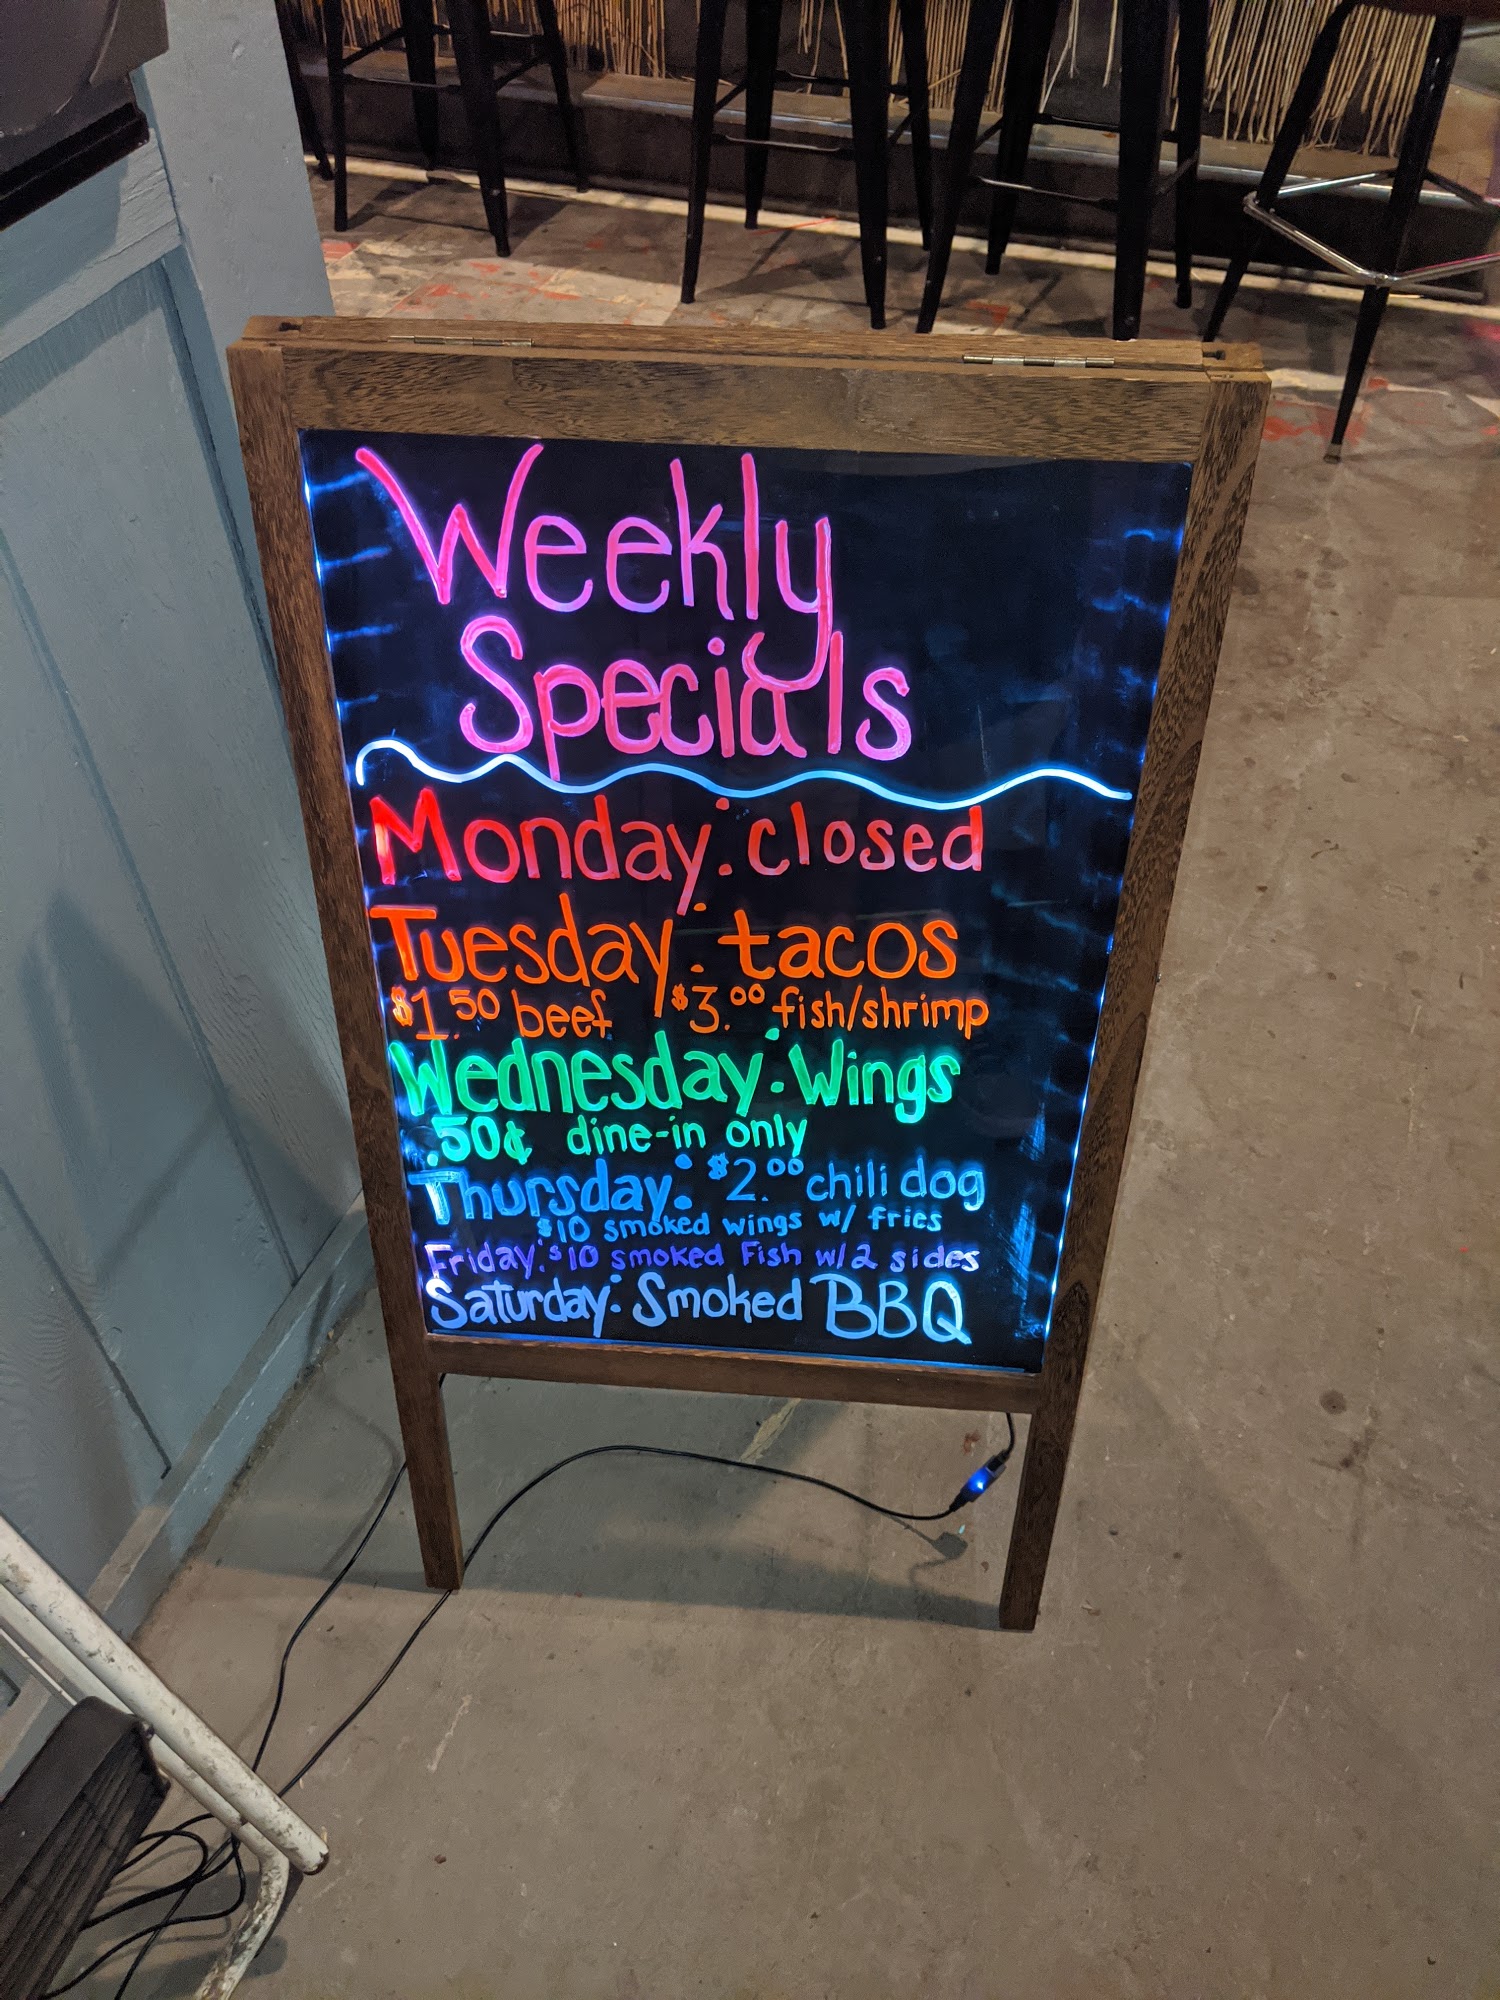 Weekly
Specials
Monday: closed
Tuesday: tacos
$1.50 beef $3.00 fish/shrimp
Wednesday: Wings
.50¢ dine-in only
Thursday: $2.00 chili dog
$10 smoked wings w/ fries
Friday: $10 smoked Fish w/2 sides
Saturday: Smoked BBQ